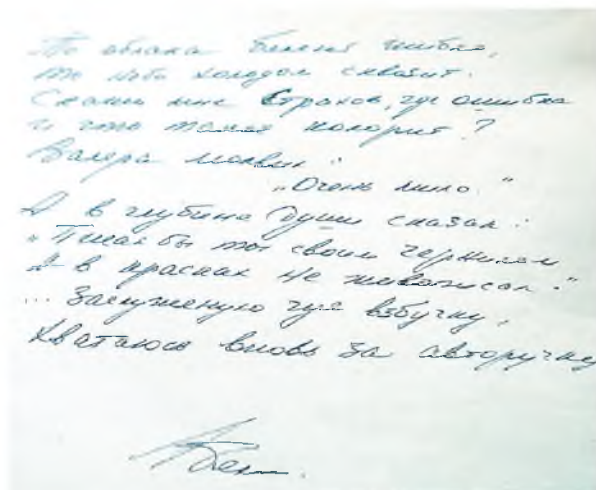 То облака белеют зыбко,
то небо холодом сквозит.
Скажи мне Страхов, где ошибка
и что такое колорит?
Валера молвил:
„Очень мило."
А в глубине души сказал:
„Писал бы ты своим чернилом
А в красках не живописал."
... Заслуженую чуя взбучку,
Хватаюсь вновь за авторучку